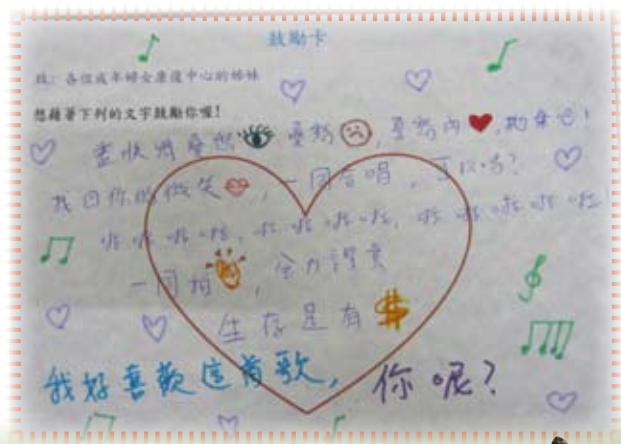 鼓勵卡
致：各位成年婦女康復中心的姊妹
想藉著下列的文字鼓勵你喔！
盡快將憂愁 憂愁 ，憂愁內 ，拋棄吧！
找回你的微笑 ，一同合唱，可以嗎？
啦啦啦啦，啦啦啦啦，啦啦啦啦啦！
一同拍 ，全力證實
生存是有 $
我好喜歡這首歌，你呢？